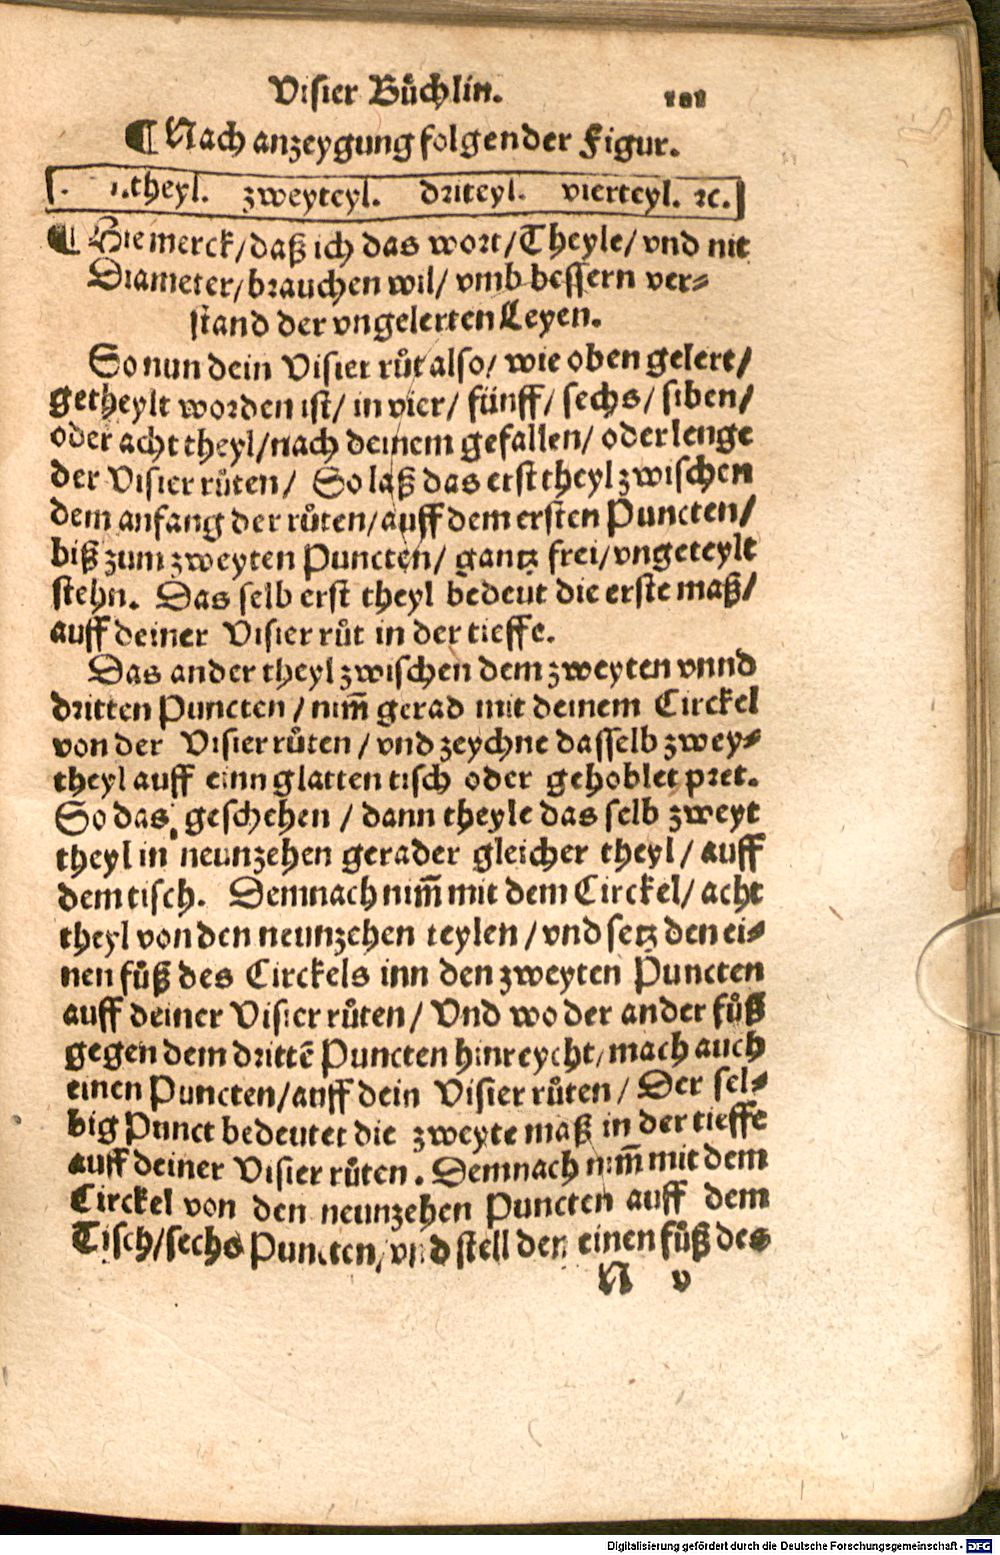 Visier Bůchlin. 101
¶ Nach anzeygung folgender Figur.
. 1.theyl. zweyteyl. driteyl. vierteyl. ꝛc.
¶ Hie merck/daß ich das wort/Theyle/vnd nit
Diameter/brauchen wil/ vmb bessern ver⸗
stand der vngelerten Leyen.
So nun dein Visier růt also/ wie oben gelert/
getheylt worden ist/ in vier/ fünff/ sechs/ siben/
oder acht theyl/nach deinem gefallen/ oder lenge
der Visier růten/ So laß das erst theyl zwischen
dem anfang der růten/auff dem ersten Puncten/
biß zum zweyten Puncten/ gantz frei/vngeteylt
stehn. Das selb erst theyl bedeut die erste maß/
auff deiner Visier růt in der tieffe.
Das ander theyl zwischen dem zweyten vnnd
dritten Puncten/nim̄ gerad mit deinem Circkel
von der Visier růten/vnd zeychne dasselb zwey⸗
theyl auff einn glatten tisch oder gehoblet pret.
So das geschehen/dann theyle das selb zweyt
theyl in neunzehen gerader gleicher theyl/ auff
dem tisch. Demnach nim̄ mit dem Circkel/ acht
theyl von den neunzehen teylen/vnd setz den ei⸗
nen fůß des Circkels inn den zweyten Puncten
auff deiner Visier růten/ Vnd wo der ander fůß
gegen dem drittē Puncten hinreycht/mach auch
einen Puncten/auff dein Visier růten/ Der sel⸗
big Punct bedeutet die zweyte maß in der tieffe
auff deiner Visier růten. Demnach nim̄ mit dem
Circkel von den neunzehen Puncten auff dem
Tisch/sechs Puncten/vnd stell den einen fůß des
N v
Digitalisierung gefördert durch die Deutsche Forschungsgemeinschaft - DFG